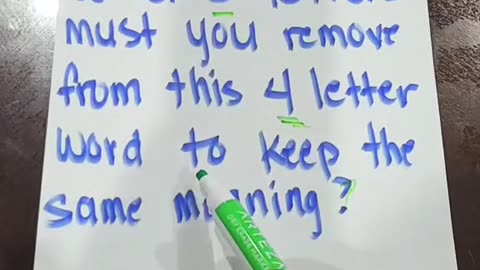 must you remove
from this 4 letter
word to keep the
same meaning?